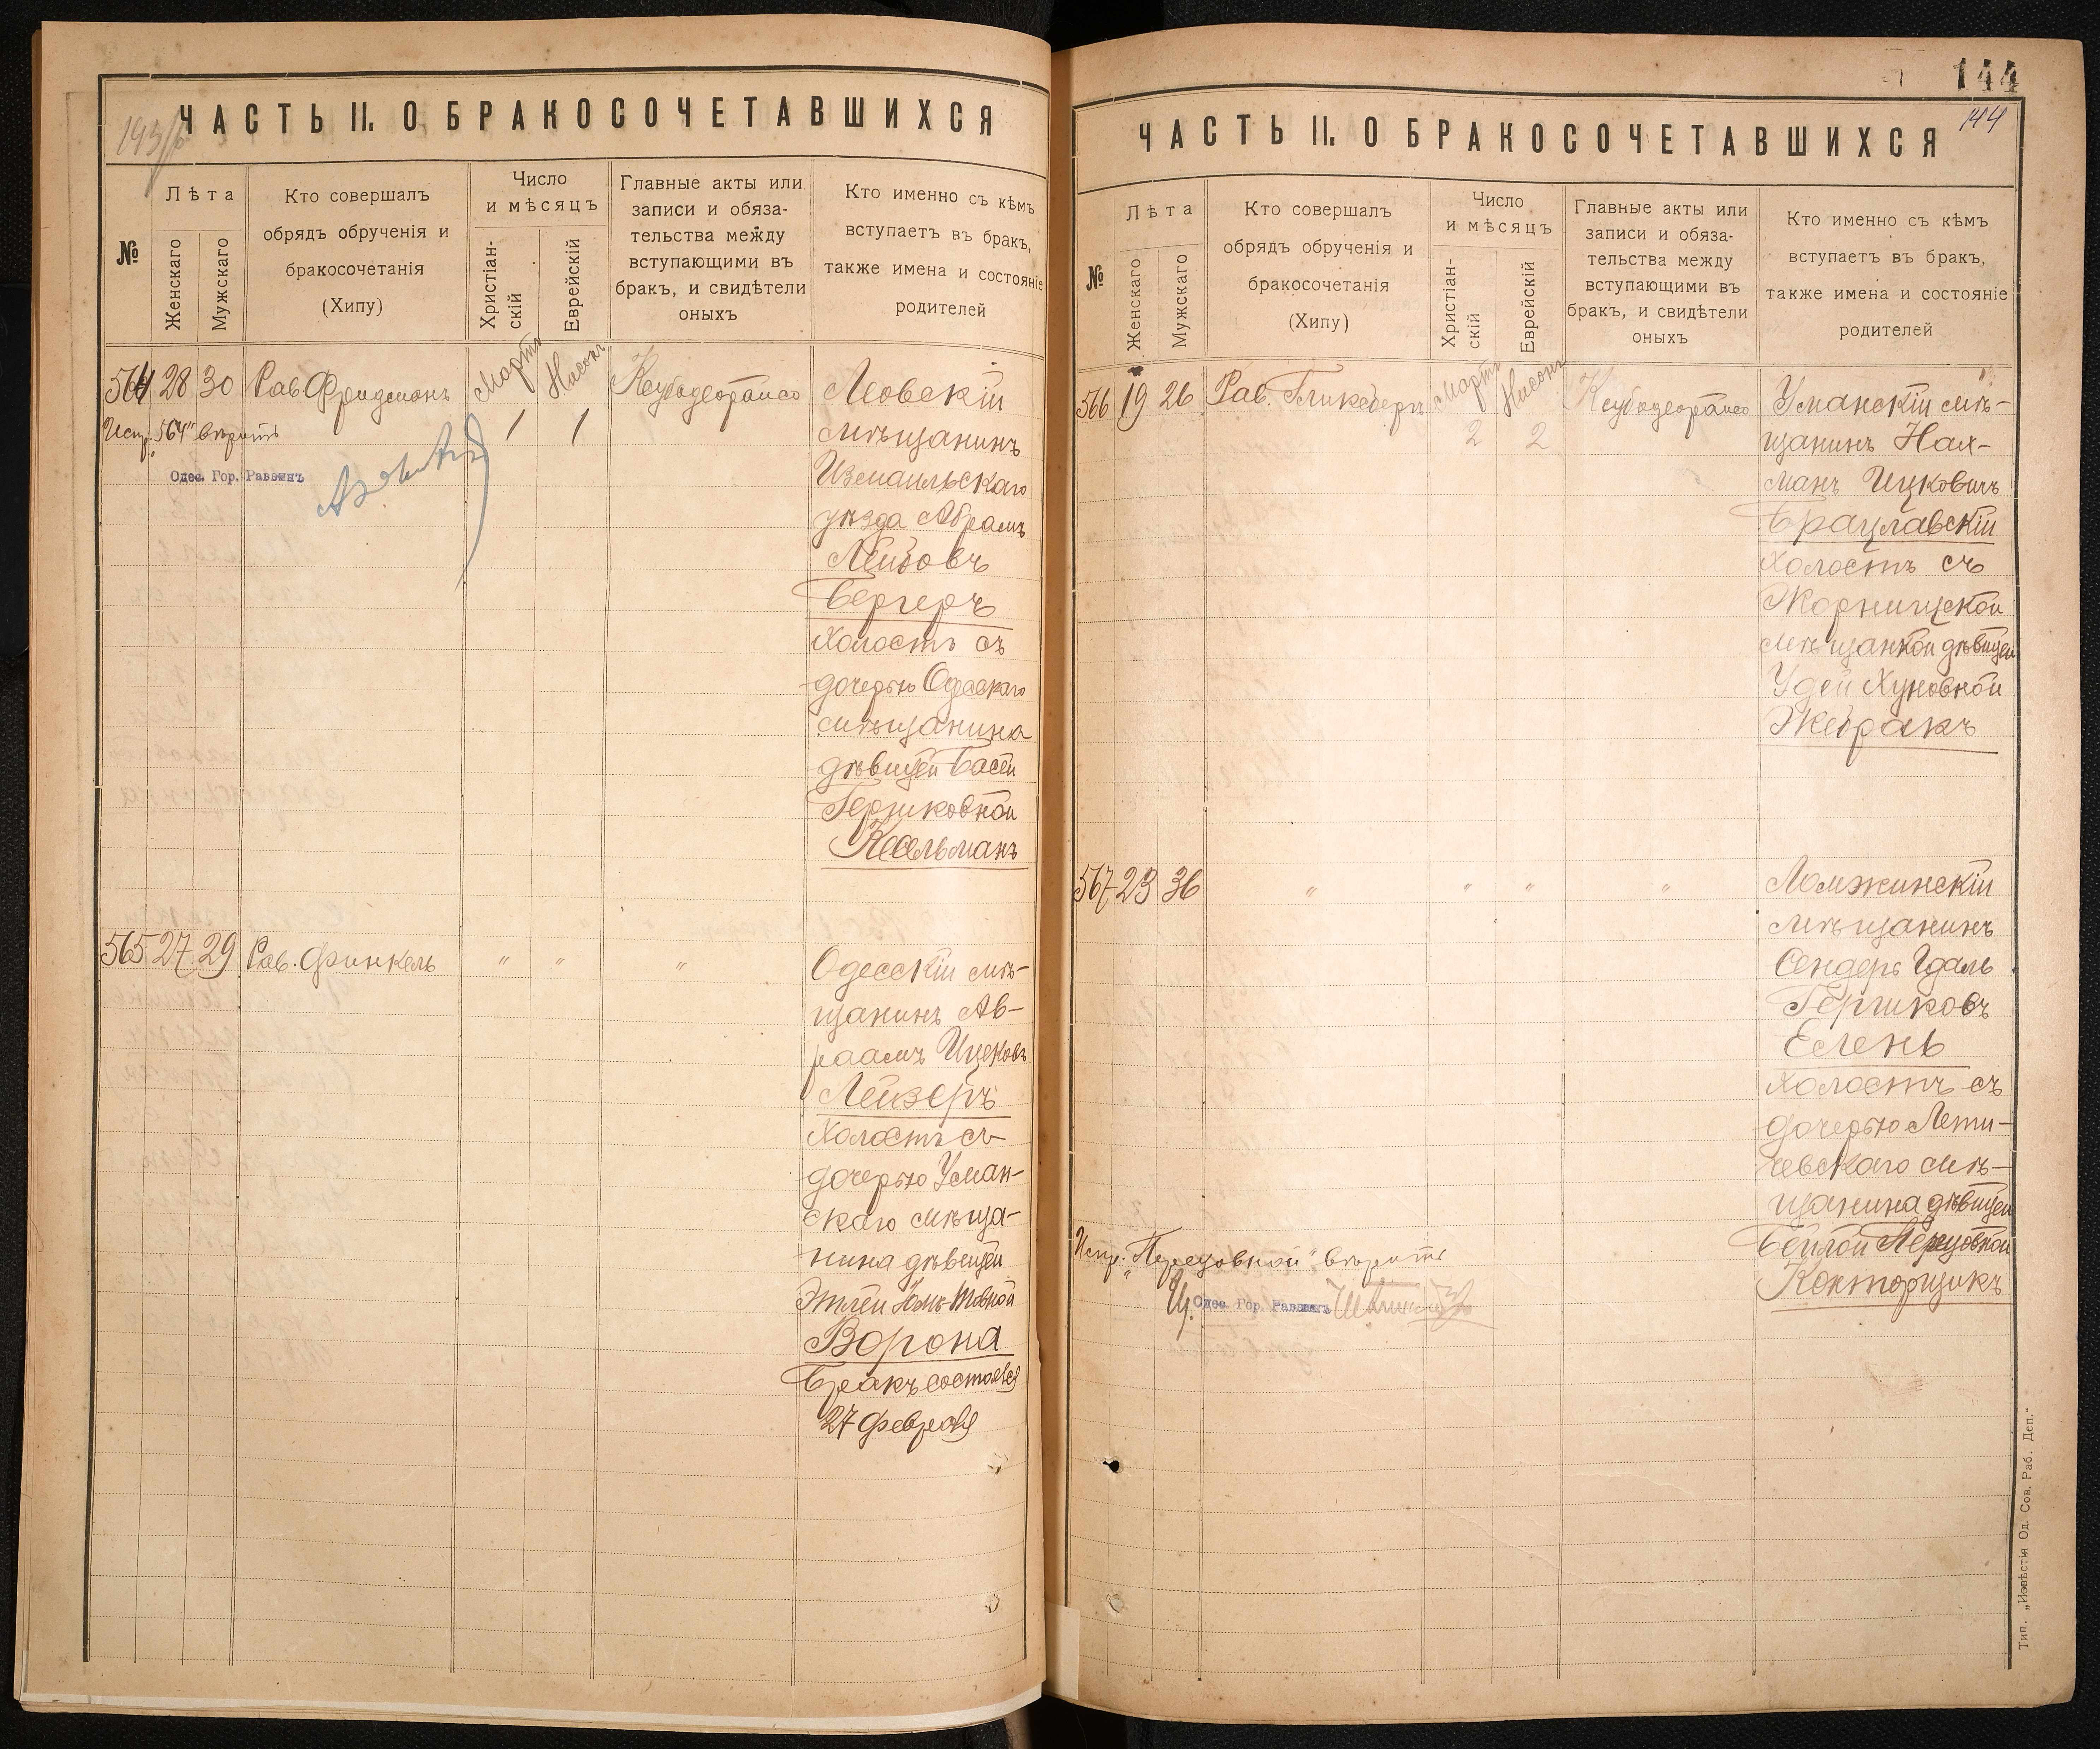 193/б
ЧАСТЬ II. О БРАКОСОЧЕТАВШИХСЯ
№
Лѣта
Женскаго
Мужскаго
Кто совершалъ
обрядъ обрученія и
бракосочетанія
(Хипу)
Число
и мѣсяцъ
Христіан-
скій
Еврейскій
Главные акты или
записи и обяза-
тельства между
вступающими въ
бракъ, и свидѣтели
оныхъ
Кто именно съ кѣмъ
вступаетъ въ бракъ,
также имена и состояніе
родителей
564 28 30 Рав Фридманъ Мартъ 1 Нисонъ 1 Ксубодеорайсо
Леовскій
мѣщанинъ
Измаильскаго
уѣзда Абрамъ
Лейбовъ
Бергеръ
холостъ съ
дочерью Одесскаго
мѣщанина
дѣвицей Басей
Гершковной
Кесельманъ
Испр. „564" вѣрить
Одес. Гор. Раввинъ
565 27 29 Рав. Финкель " " "
Одесскій мѣ-
щанинъ Ав-
раамъ Ицковъ
Лейзеръ
холостъ съ
дочерью Уман-
скаго мѣща-
нина дѣвицей
Этлей Іомъ-Товной
Ворона
Бракъ состоялся
27 февраля
144
144
ЧАСТЬ II. О БРАКОСОЧЕТАВШИХСЯ
№
Лѣта
Женскаго
Мужскаго
Кто совершалъ
обрядъ обрученія и
бракосочетанія
(Хипу)
Число
и мѣсяцъ
Христіан-
скій
Еврейскій
Главные акты или
записи и обяза-
тельства между
вступающими въ
бракъ, и свидѣтели
оныхъ
Кто именно съ кѣмъ
вступаетъ въ бракъ,
также имена и состояніе
родителей
566 19 26 Рав. Гликсбергъ Мартъ 2 Нисонъ 2 Ксубодеорайсо
Уманскій мѣ-
щанинъ Нах-
манъ Ицковичъ
Брацлавскій
холостъ съ
Жорнищской
мѣщанкой дѣвицей
Удей Хуновной
Жебракъ
567 23 36 " " " "
Ломжинскій
мѣщанинъ
Сендеръ Гдаль
Гершковъ
Елень
холостъ съ
дочерью Лети-
чевскаго мѣ-
щанина дѣвицей
Бейлой Перецовной
Конторщикъ
Испр. „Перецовной" вѣрить
Одес. Гор. Раввинъ
Тип. „Извѣстія Од. Сов. Раб. Деп."